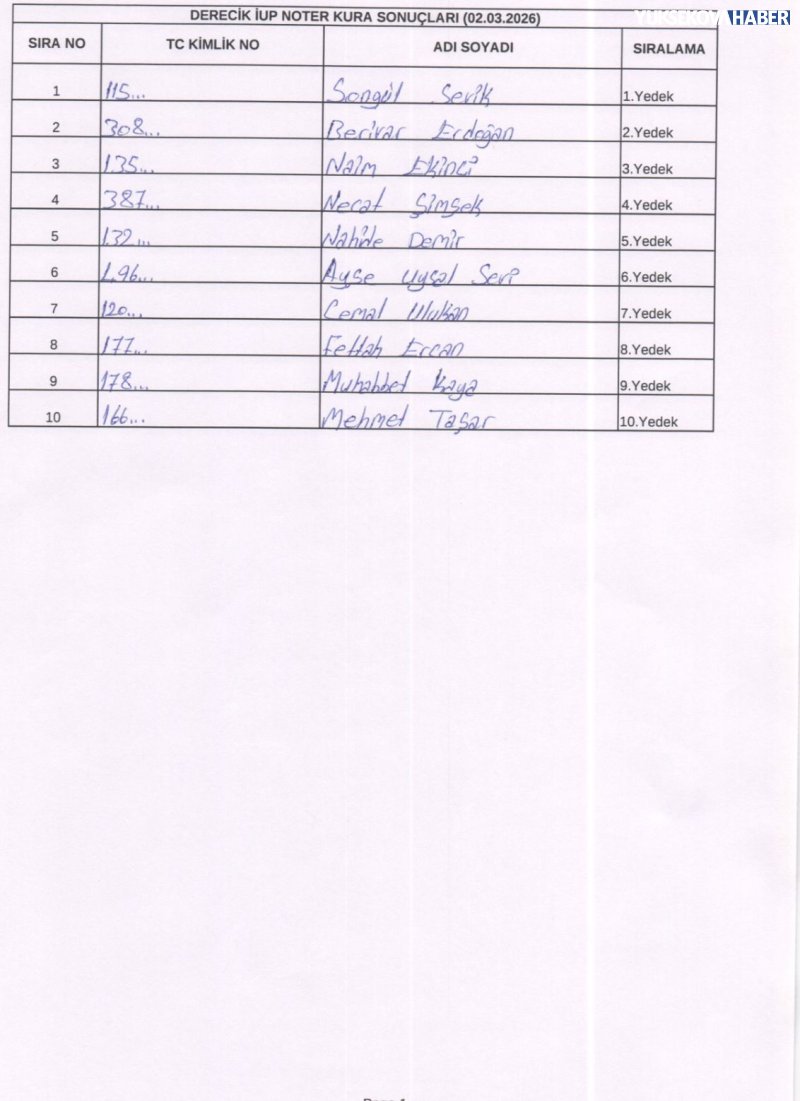 DERECİK İUP NOTER KURA SONUÇLARI (02.03.2026)
YÜKSEKOVA HABER
SIRA NO TC KİMLİK NO ADI SOYADI SIRALAMA
1 115... Songül Sevik 1.Yedek
2 308... Berivar Erdoğan 2.Yedek
3 135... Naim Ekinci 3.Yedek
4 387... Necat Şimşek 4.Yedek
5 132... Nahide Demir 5.Yedek
6 196... Ayşe Uysal Sevi 6.Yedek
7 120... Cemal Ulukan 7.Yedek
8 177... Fettah Ercan 8.Yedek
9 178... Muhabbet Kaya 9.Yedek
10 166... Mehmet Taşar 10.Yedek